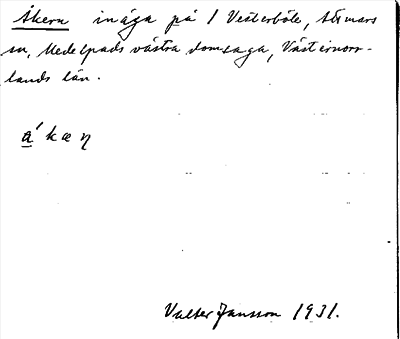 Åkern inäga på 1 Västerböle, Attmars
sn, Medelpads västra domsaga, Västernorr-
lands län.
å' k æ ŋ
Valter Jansson 1931.